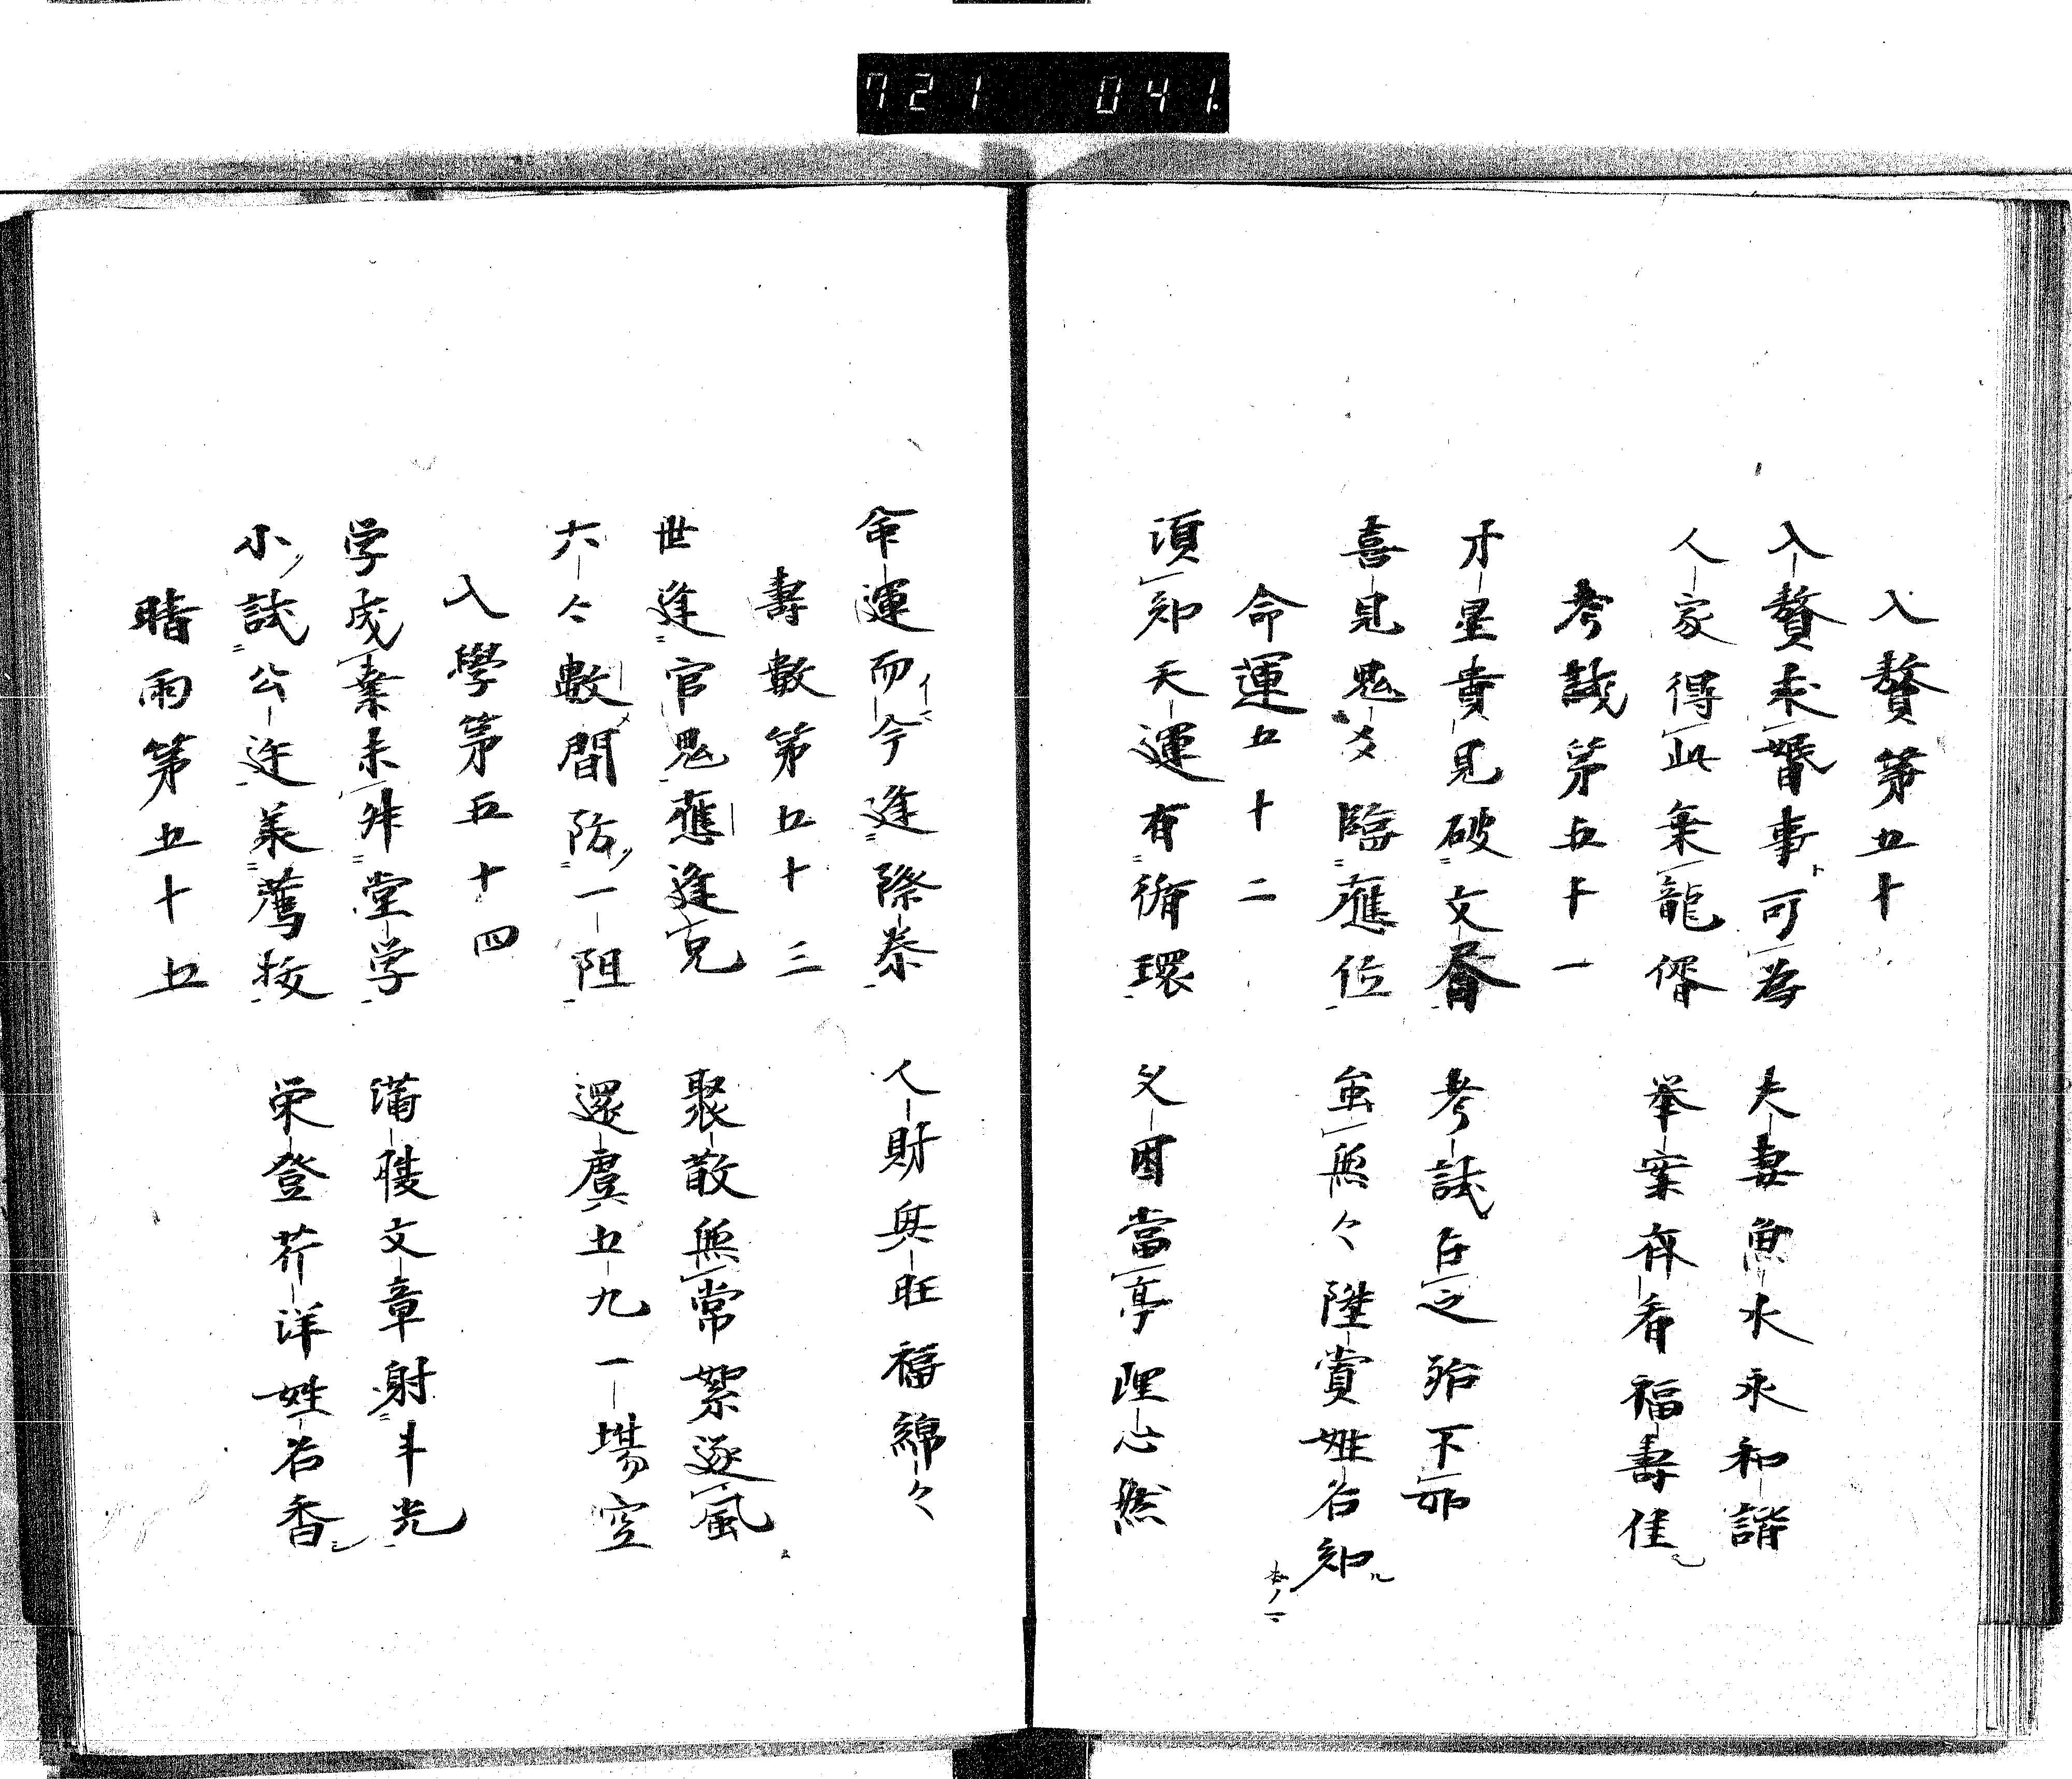 721 041
入贅第五十
入贅求婚事可為 夫妻魚水永和諧
人家得此乗龍偦 举案斉看福壽佳
考試第五十一
才星貴見破文昏 考試占之殆下
喜見鬼爻臨應位 虽無々陞賞姓名知
命運五十二
須知天運有循環 爻因當亨理心然
本ノマヽ
命運而今逢際泰 人財興旺福綿々
壽數第五十三
世逢官鬼應逢克 聚散無常絮逐風
六々數間防一阻 還虞五九一場空
入學第五十四
学成業未升堂学 満腹文章射斗光
小試公逆羕薦按 栄登芥洋姓名香
晴雨第五十五